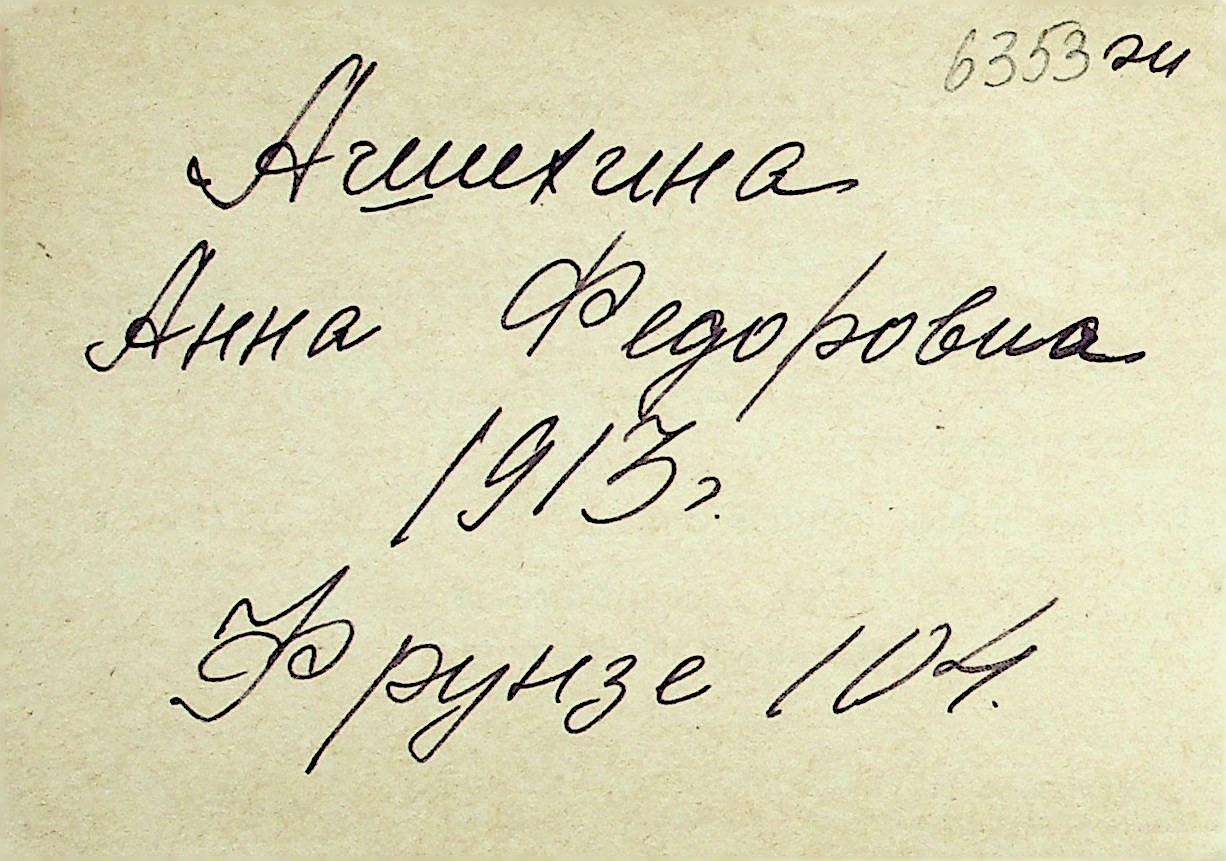 6353
Ашихина
Анна Федоровна
1913 г.
Фрунзе 104.